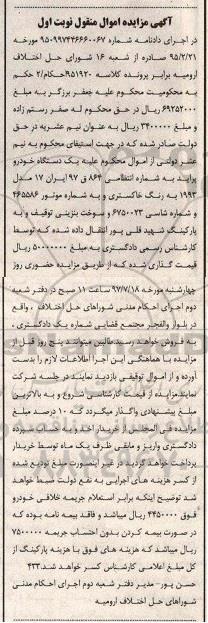 آگهی مزایده اموال منقول نوبت اول
در اجرای دادنامه شماره ۹۵۰۹۹۷۴۴۶۶۶۰۰۶۷ مورخه
۹۵/۲/۲۱ صادره از شعبه ۱۶ شورای حل اختلاف
ارومیه برابر پرونده کلاسه ۹۵۱۹۲۰حکام/۲ حکم
به محکومیت محکوم علیه جعفر برزگر به مبلغ
۶۹۲۵۲۰۰۰ ریال در حق محکوم له صفر رستم زاده
و مبلغ ۳۴۰۰۰۰۰ ریال به عنوان نیم عشریه در حق
دولت صادر شده که در جهت استیفای محکوم به نیم
عشر دولتی از اموال محکوم علیه یک دستگاه خودرو
پراید به شماره انتظامی ۸۶۴ ق ۹۷ ایران ۱۷ مدل
۱۹۹۳ به رنگ خاکستری و به شماره موتور ۴۶۵۵۸۶
و شماره شاسی ۶۷۵۰۰۲۳ و سوخت بنزینی توقیف و به
پارکینگ شهید قلی پور انتقال داده شده که توسط
کارشناس رسمی دادگستری به مبلغ ۵۰۰۰۰۰۰۰ ریال
قیمت گذاری شده که از طریق مزایده حضوری روز
چهارشنبه مورخه ۹۷/۷/۱۸ ساعت ۱۱ صبح در دفتر شعبه
دوم اجرای احکام مدنی شوراهای حل اختلاف ، واقع
در بلوار والفجر مجتمع قضایی شماره یک دادگستری ،
به فروش خواهد رسید طالبین میتوانند پنج روز قبل از
مزایده با هماهنگی این اجرا اطلاعات لازم را بدست
آورده و از اموال توقیفی بازدید نمایند در جلسه شرکت
نمایند.مزایده از قیمت کارشناسی شروع و به بالاترین
مبلغ پیشنهادی واگذار میگردد گه ۱۰ درصد مبلغ
مزایده فی المجلس از خریدار اخذ و به حساب سپرده
دادگستری واریز و مابقی ظرف یک ماه توسط خریدار
پرداخت خواهد گردید در غیر اینصورت مبلغ تودیع شده
از کسر هزینه های اجرایی به نفع دولت ضبط خواهد
شد توضیح اینکه برابر استعلام جریمه خلافی خودرو
فوق ۴۴۵۰۰۰۰ ریال میباشد و فاقد بیمه نامه بوده که
در صورت بیمه کردن بدون احتساب جریمه ۷۵۰۰۰۰۰
ریال میباشد که هزینه های فوق با هزینه پارکینگ از
کل مبلغ اعلامی کارشناس کسر خواهد شد.۴۳۳
حسن پور- مدیر دفتر شعبه دوم اجرای احکام مدنی
شوراهای حل اختلاف ارومیه